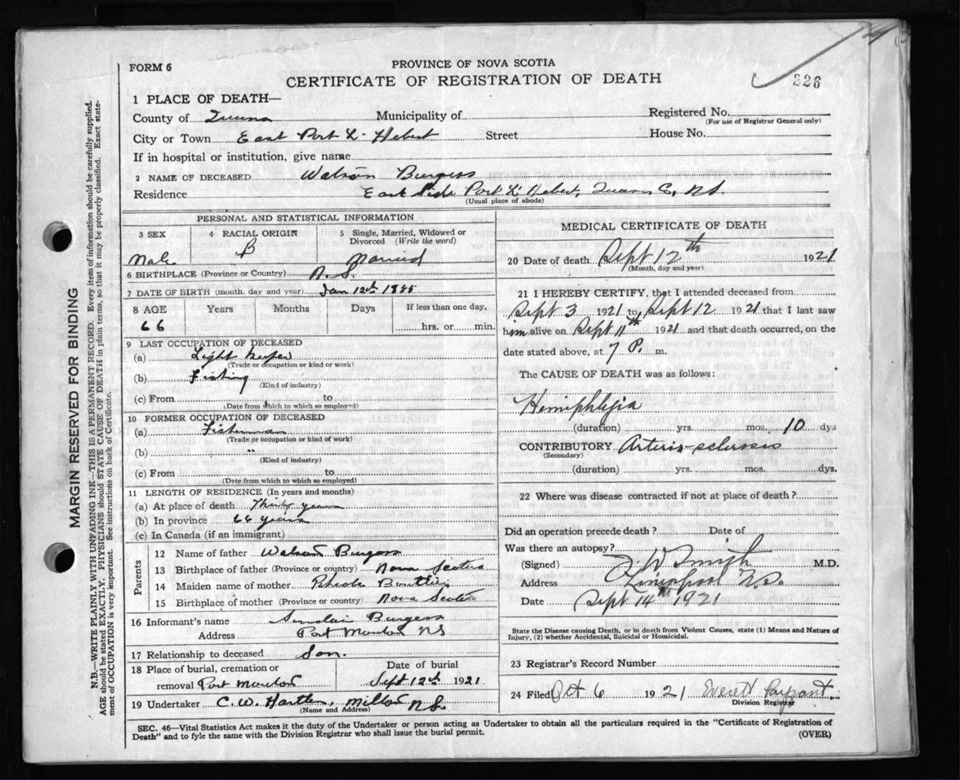 FORM 6
PROVINCE OF NOVA SCOTIA
CERTIFICATE OF REGISTRATION OF DEATH
326
1 PLACE OF DEATH—
County of Queens Municipality of Registered No.
(For use of Registrar General only)
City or Town East Port L'Hebert Street House No.
If in hospital or institution, give name
2 NAME OF DECEASED Watson Burgess
Residence East Side Port L'Hebert, Queens Co, N.S.
(Usual place of abode)
PERSONAL AND STATISTICAL INFORMATION
3 SEX 4 RACIAL ORIGIN 5 Single, Married, Widowed or
Divorced (Write the word)
Male Married
6 BIRTHPLACE (Province or Country) N.S.
7 DATE OF BIRTH (month, day and year) Jan 12th
8 AGE Years Months Days If less than one day,
66 hrs. or min.
9 LAST OCCUPATION OF DECEASED
(a) Light Keeper
(Trade or occupation or kind or work)
(b) Fishing
(Kind of industry)
(c) From to
(Date from which to which so employed)
10 FORMER OCCUPATION OF DECEASED
(a) Fisherman
(Trade or occupation or kind of work)
(b) "
(Kind of industry)
(c) From to
(Date from which to which so employed)
11 LENGTH OF RESIDENCE (In years and months)
(a) At place of death Thirty years
(b) In province 66 years
(c) In Canada (if an immigrant)
Parents
12 Name of father Watson Burgess
13 Birthplace of father (Province or country) Nova Scotia
14 Maiden name of mother Rhoda
15 Birthplace of mother (Province or country) Nova Scotia
16 Informant's name Sinclair Burgess
Address Port Mouton NS
17 Relationship to deceased Son.
18 Place of burial, cremation or Date of burial
removal Port Mouton Sept 12th 1921
19 Undertaker C. W. Milton N.S.
(Name and Address)
MEDICAL CERTIFICATE OF DEATH
20 Date of death Sept 12th 1921
(Month, day and year)
21 I HEREBY CERTIFY, that I attended deceased from
Sept 3 1921 to Sept 12 1921 that I last saw
him alive on Sept 11th 1921 and that death occurred, on the
date stated above, at 7 P. m.
The CAUSE OF DEATH was as follows:
Hemiplegia
(duration) yrs. mos. 10 dys
CONTRIBUTORY Arterio-sclerosis
(Secondary)
(duration) yrs. mos. dys.
22 Where was disease contracted if not at place of death?
Did an operation precede death? Date of
Was there an autopsy?
(Signed) J W Smith M.D.
Address Liverpool N.S.
Date Sept 14th 1921
State the Disease causing Death, or in death from Violent Causes, state (1) Means and Nature of
Injury, (2) whether Accidental, Suicidal or Homicidal.
23 Registrar's Record Number
24 Filed Oct 6 1921 Everett Payzant
Division Registrar
SEC. 46—Vital Statistics Act makes it the duty of the Undertaker or person acting as Undertaker to obtain all the particulars required in the "Certificate of Registration of
Death" and to fyle the same with the Division Registrar who shall issue the burial permit. (OVER)
MARGIN RESERVED FOR BINDING
N.B.—WRITE PLAINLY WITH UNFADING INK—THIS IS A PERMANENT RECORD. Every item of information should be carefully supplied.
AGE should be stated EXACTLY. PHYSICIANS should STATE CAUSE OF DEATH in plain terms, so that it may be properly classified. Exact state-
ment of OCCUPATION is very important. See instructions on back of Certificate.